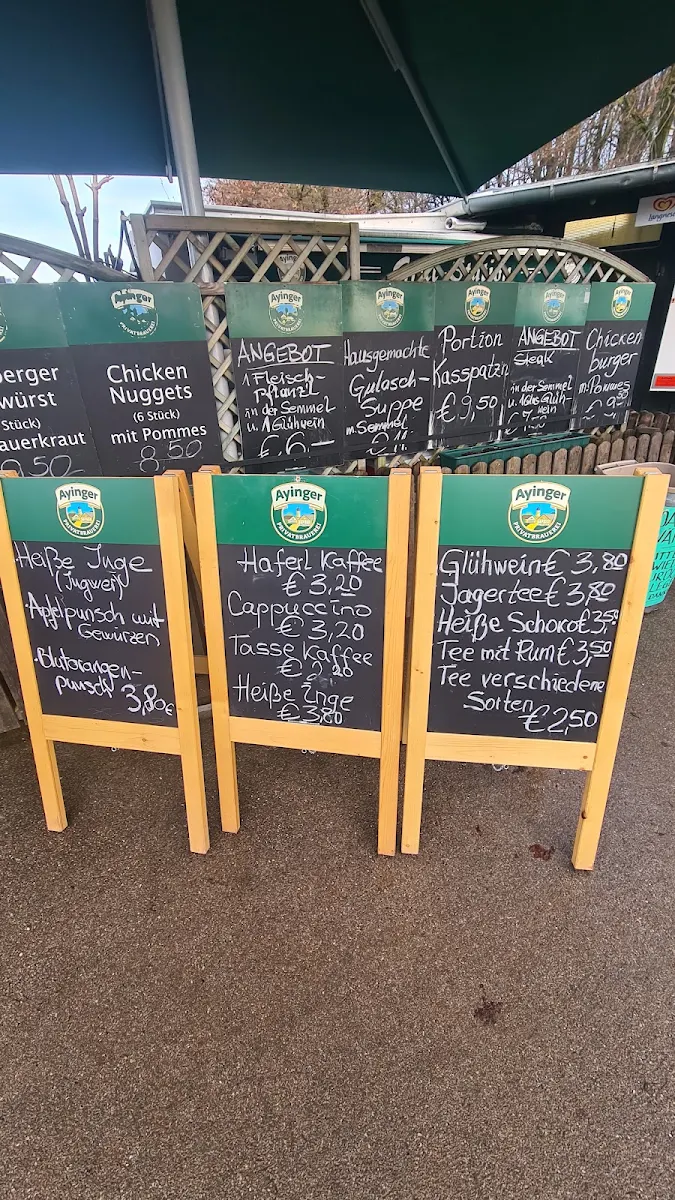 Langnese
Ayinger
PRIVATBRAUEREI
berger
würst
Stück)
auerkraut
9,50
Chicken
Nuggets
(6 Stück)
mit Pommes
8,50
Ayinger
PRIVATBRAUEREI
ANGEBOT
1 Fleisch-
pflanzl
in der Semmel
u. 1 Glühwein
€ 6,-
Ayinger
Hausgemachte
Gulasch-
Suppe
m. Semmel
Ayinger
Portion
Kasspatzn
€ 9,50
Ayinger
ANGEBOT
Steak
in der Semmel
u. 1 Glas Glüh-
wein
Ayinger
Chicken
burger
m. Pommes
Ayinger
PRIVATBRAUEREI
Heiße Inge
(Ingwer)
·Apfelpunsch mit
Gewürzen
·Blutorangen-
punsch 3,80€
Ayinger
PRIVATBRAUEREI
Haferl Kaffee
€ 3,20
Cappuccino
€ 3,20
Tasse Kaffee
€ 2,80
Heiße Inge
€ 3,80
Ayinger
PRIVATBRAUEREI
Glühwein € 3,80
Jagertee € 3,80
Heiße Schoko € 3,50
Tee mit Rum € 3,50
Tee verschiedene
Sorten
€ 2,50